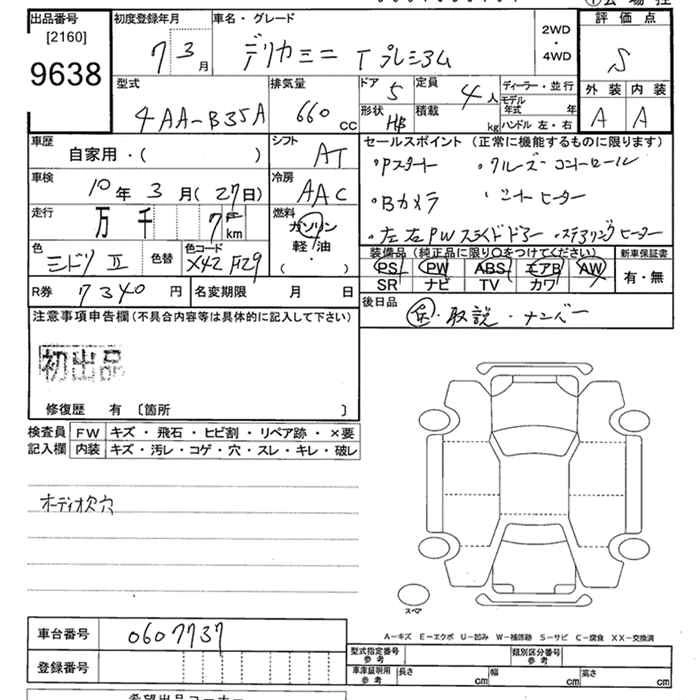 出品番号
[2160]
9638
初度登録年月
7 3月
車名・グレード
デリカミニ T プレミアム
2WD
・
4WD
評価点
S
外装 内装
A A
型式
4AA-B35A
排気量
660 cc
ドア 5
定員 4人
形状 HB
積載 kg
ディーラー・並行
モデル年式 年
ハンドル 左・右
車歴
自家用・( )
シフト
AT
セールスポイント (正常に機能するものに限ります)
・Pスタート ・クルーズコントロール
・Bカメラ ・シートヒーター
・左右PWスライドドアー ・ステアリングヒーター
車検
10年3月(27日)
冷房
AAC
走行
万 千 7km
燃料
ガソリン
軽油
( ・ )
色
ミドリ II
色替
色コード
X42 F29
装備品 (純正品に限り○をつけてください)
PS PW ABS エアB AW
SR ナビ TV カワ
新車保証書
有・無
R券 7340 円
名変期限 月 日
後日品
保・取説・ナンバー
注意事項申告欄(不具合内容等は具体的に記入して下さい)
初出品
修復歴 有 〔箇所 〕
検査員記入欄
FW キズ・飛石・ヒビ割・リペア跡・×要
内装 キズ・汚レ・コゲ・穴・スレ・キレ・破レ
オーディオ欠穴
スペア
A－キズ E－エクボ U－凹み W－補修跡 S－サビ C－腐食 XX－交換済
車台番号 0607737
登録番号
型式指定番号 参考
類別区分番号 参考
車庫証明用 参考 長さ cm 幅 cm 高さ cm
希望出品コーナー